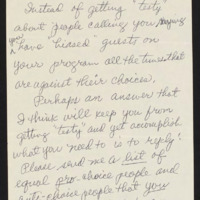 Instead of getting "testy"
about people calling you, saying
you have "biased" guests on
your program all the times that
are against their choices,
Perhaps an answer that
I think will keep you from
getting "testy" and get accomplish
what you "need to is to reply":
Please send me a list of
equal pro-choice people and
anti-choice people that you